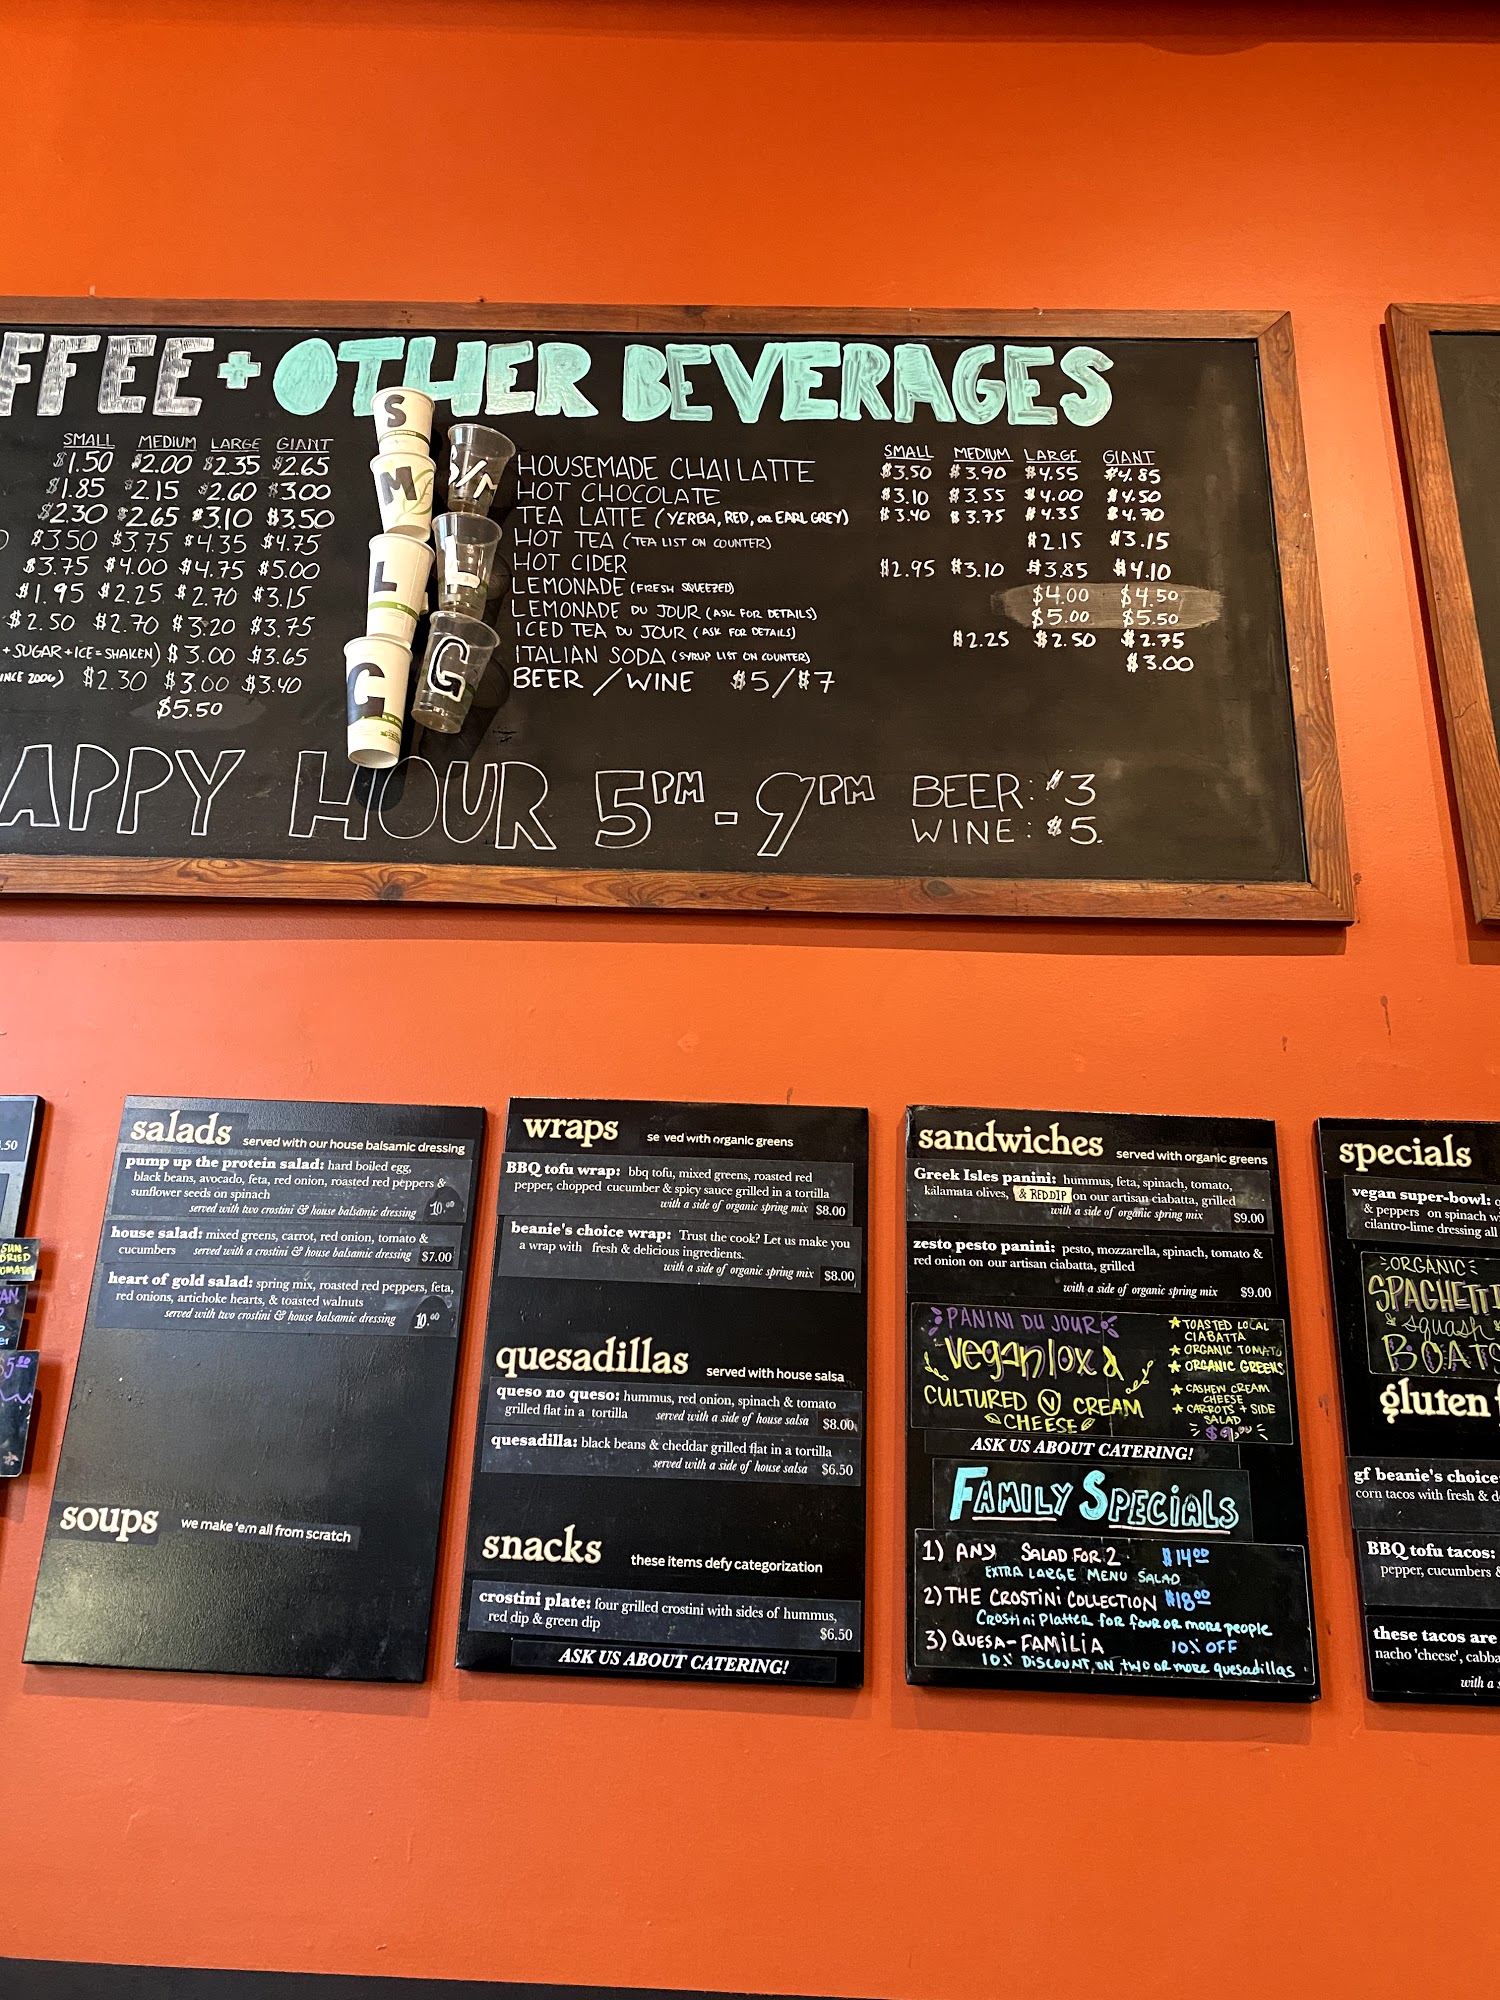 FFEE + OTHER BEVERAGES
SMALL MEDIUM LARGE GIANT
$1.50 $2.00 $2.35 $2.65
$1.85 $2.15 $2.60 $3.00
$2.30 $2.65 $3.10 $3.50
$3.50 $3.75 $4.35 $4.75
$3.75 $4.00 $4.75 $5.00
$1.95 $2.25 $2.70 $3.15
$2.50 $2.70 $3.20 $3.75
+ SUGAR + ICE = SHAKEN) $3.00 $3.65
INCE 2006) $2.30 $3.00 $3.40
$5.50
S
M
L
G
S/M
L
G
SMALL MEDIUM LARGE GIANT
HOUSEMADE CHAI LATTE $3.50 $3.90 $4.55 $4.85
HOT CHOCOLATE $3.10 $3.55 $4.00 $4.50
TEA LATTE (YERBA, RED, OR EARL GREY) $3.40 $3.75 $4.35 $4.70
HOT TEA (TEA LIST ON COUNTER) $2.15 $3.15
HOT CIDER $2.95 $3.10 $3.85 $4.10
LEMONADE (FRESH SQUEEZED) $4.00 $4.50
LEMONADE DU JOUR (ASK FOR DETAILS) $5.00 $5.50
ICED TEA DU JOUR (ASK FOR DETAILS) $2.25 $2.50 $2.75
ITALIAN SODA (SYRUP LIST ON COUNTER) $3.00
BEER / WINE $5/$7
APPY HOUR 5PM - 9PM
BEER: $3
WINE: $5.
.50
SUN-
DRIED
TOMATO
salads served with our house balsamic dressing
pump up the protein salad: hard boiled egg,
black beans, avocado, feta, red onion, roasted red peppers &
sunflower seeds on spinach
served with two crostini & house balsamic dressing 10.00
house salad: mixed greens, carrot, red onion, tomato &
cucumbers served with a crostini & house balsamic dressing $7.00
heart of gold salad: spring mix, roasted red peppers, feta,
red onions, artichoke hearts, & toasted walnuts
served with two crostini & house balsamic dressing 10.00
soups we make 'em all from scratch
wraps se ved with organic greens
BBQ tofu wrap: bbq tofu, mixed greens, roasted red
pepper, chopped cucumber & spicy sauce grilled in a tortilla
with a side of organic spring mix $8.00
beanie's choice wrap: Trust the cook? Let us make you
a wrap with fresh & delicious ingredients.
with a side of organic spring mix $8.00
quesadillas served with house salsa
queso no queso: hummus, red onion, spinach & tomato
grilled flat in a tortilla served with a side of house salsa $8.00
quesadilla: black beans & cheddar grilled flat in a tortilla
served with a side of house salsa $6.50
snacks these items defy categorization
crostini plate: four grilled crostini with sides of hummus,
red dip & green dip
$6.50
ASK US ABOUT CATERING!
sandwiches served with organic greens
Greek Isles panini: hummus, feta, spinach, tomato,
kalamata olives, & RED DIP on our artisan ciabatta, grilled
with a side of organic spring mix $9.00
zesto pesto panini: pesto, mozzarella, spinach, tomato &
red onion on our artisan ciabatta, grilled
with a side of organic spring mix $9.00
PANINI DU JOUR
Vegan lox &
CULTURED V CREAM
CHEESE
★ TOASTED LOCAL
CIABATTA
★ ORGANIC TOMATO
★ ORGANIC GREENS
★ CASHEW CREAM
CHEESE
★ CARROTS + SIDE
SALAD
ASK US ABOUT CATERING!
FAMILY SPECIALS
1) ANY SALAD FOR 2 $14.00
EXTRA LARGE MENU SALAD
2) THE CROSTINI COLLECTION $18.00
CROSTINI PLATTER FOR FOUR OR MORE PEOPLE
3) QUESA-FAMILIA 10% OFF
10% DISCOUNT ON TWO OR MORE QUESADILLAS
specials
vegan super-bowl:
& peppers on spinach
cilantro-lime dressing all
ORGANIC
SPAGHETTI
squash
BOATS
gluten
gf beanie's choice
corn tacos with fresh &
BBQ tofu tacos:
pepper, cucumbers &
these tacos are
nacho 'cheese',
with a